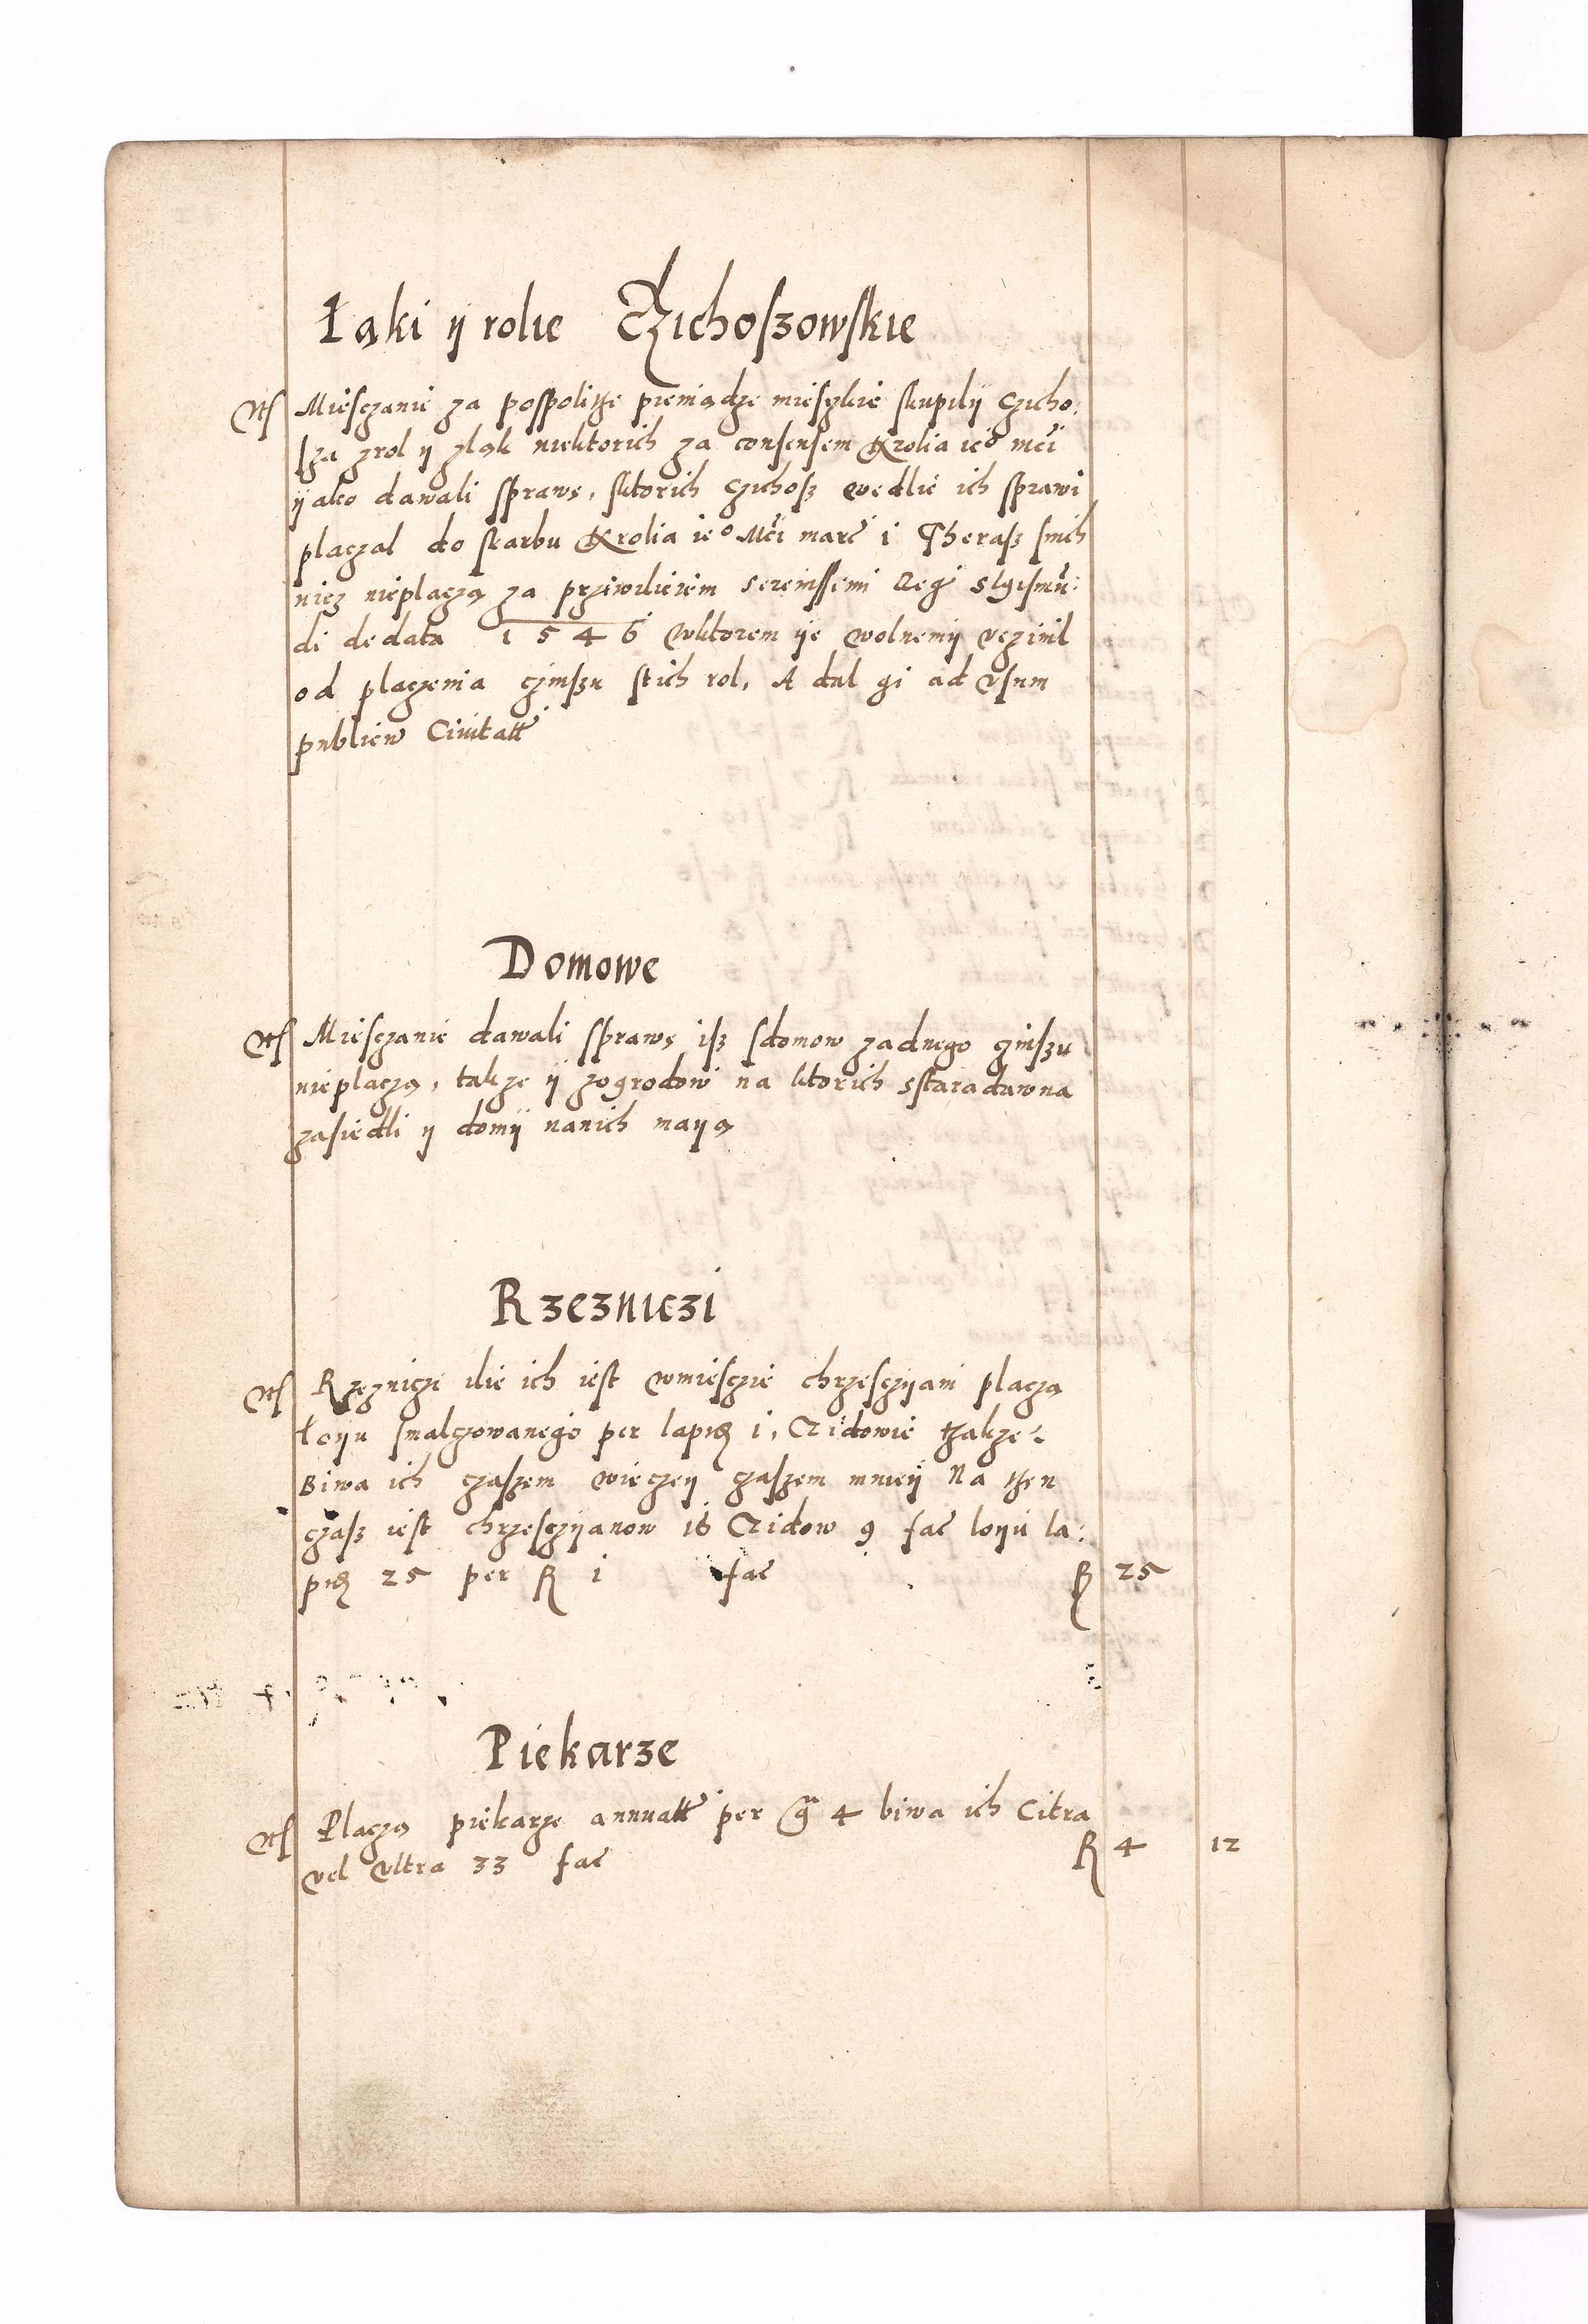 Łąki ÿ rolie Czichoszowskie
Miesczanie za pospolitze pieniądze miesyskie skupilÿ czicho:
sza zrol ÿ zląk niektorich za consensem Krolia ieo mći
ÿako dawali sprawę, sktorich czichosz wedlie ich sprawi
placzal do skarbu Krolia ieo Mći març i Therasz snich
nicz nieplaczą za prziwilieiem serenissemi Reg Sigismū:
di de data 1546 wktorem ÿe wolnemÿ uczinil
od placzenia czinszu stich rol, A dal gi ad vsum
publicu Civitatt
Domowe
Miesczanie dawali sprawę isz sdomow zadnego czinszu
nieplaczą, takze ÿ zogrodow na ktorich sstaradawna
zasiedli ÿ domÿ nanich maÿą
Rzezniczi
Rzeznicze ilie ich iest wmiesczie chrzesczÿani placzą
łoÿu smalczowanego per lapid i, Zidowie tzakze
Biwa ich czaszem wieczeÿ czaszem mnieÿ Na tzen
czasz iest chrzesczÿanow 16 Zidow 9 fac loÿu la:
pid 25 per R i fac R 25
Piekarze
Placzą piekarze annuatt per g 4 biwa ich Citra
vel vltra 33 fac R 4 12